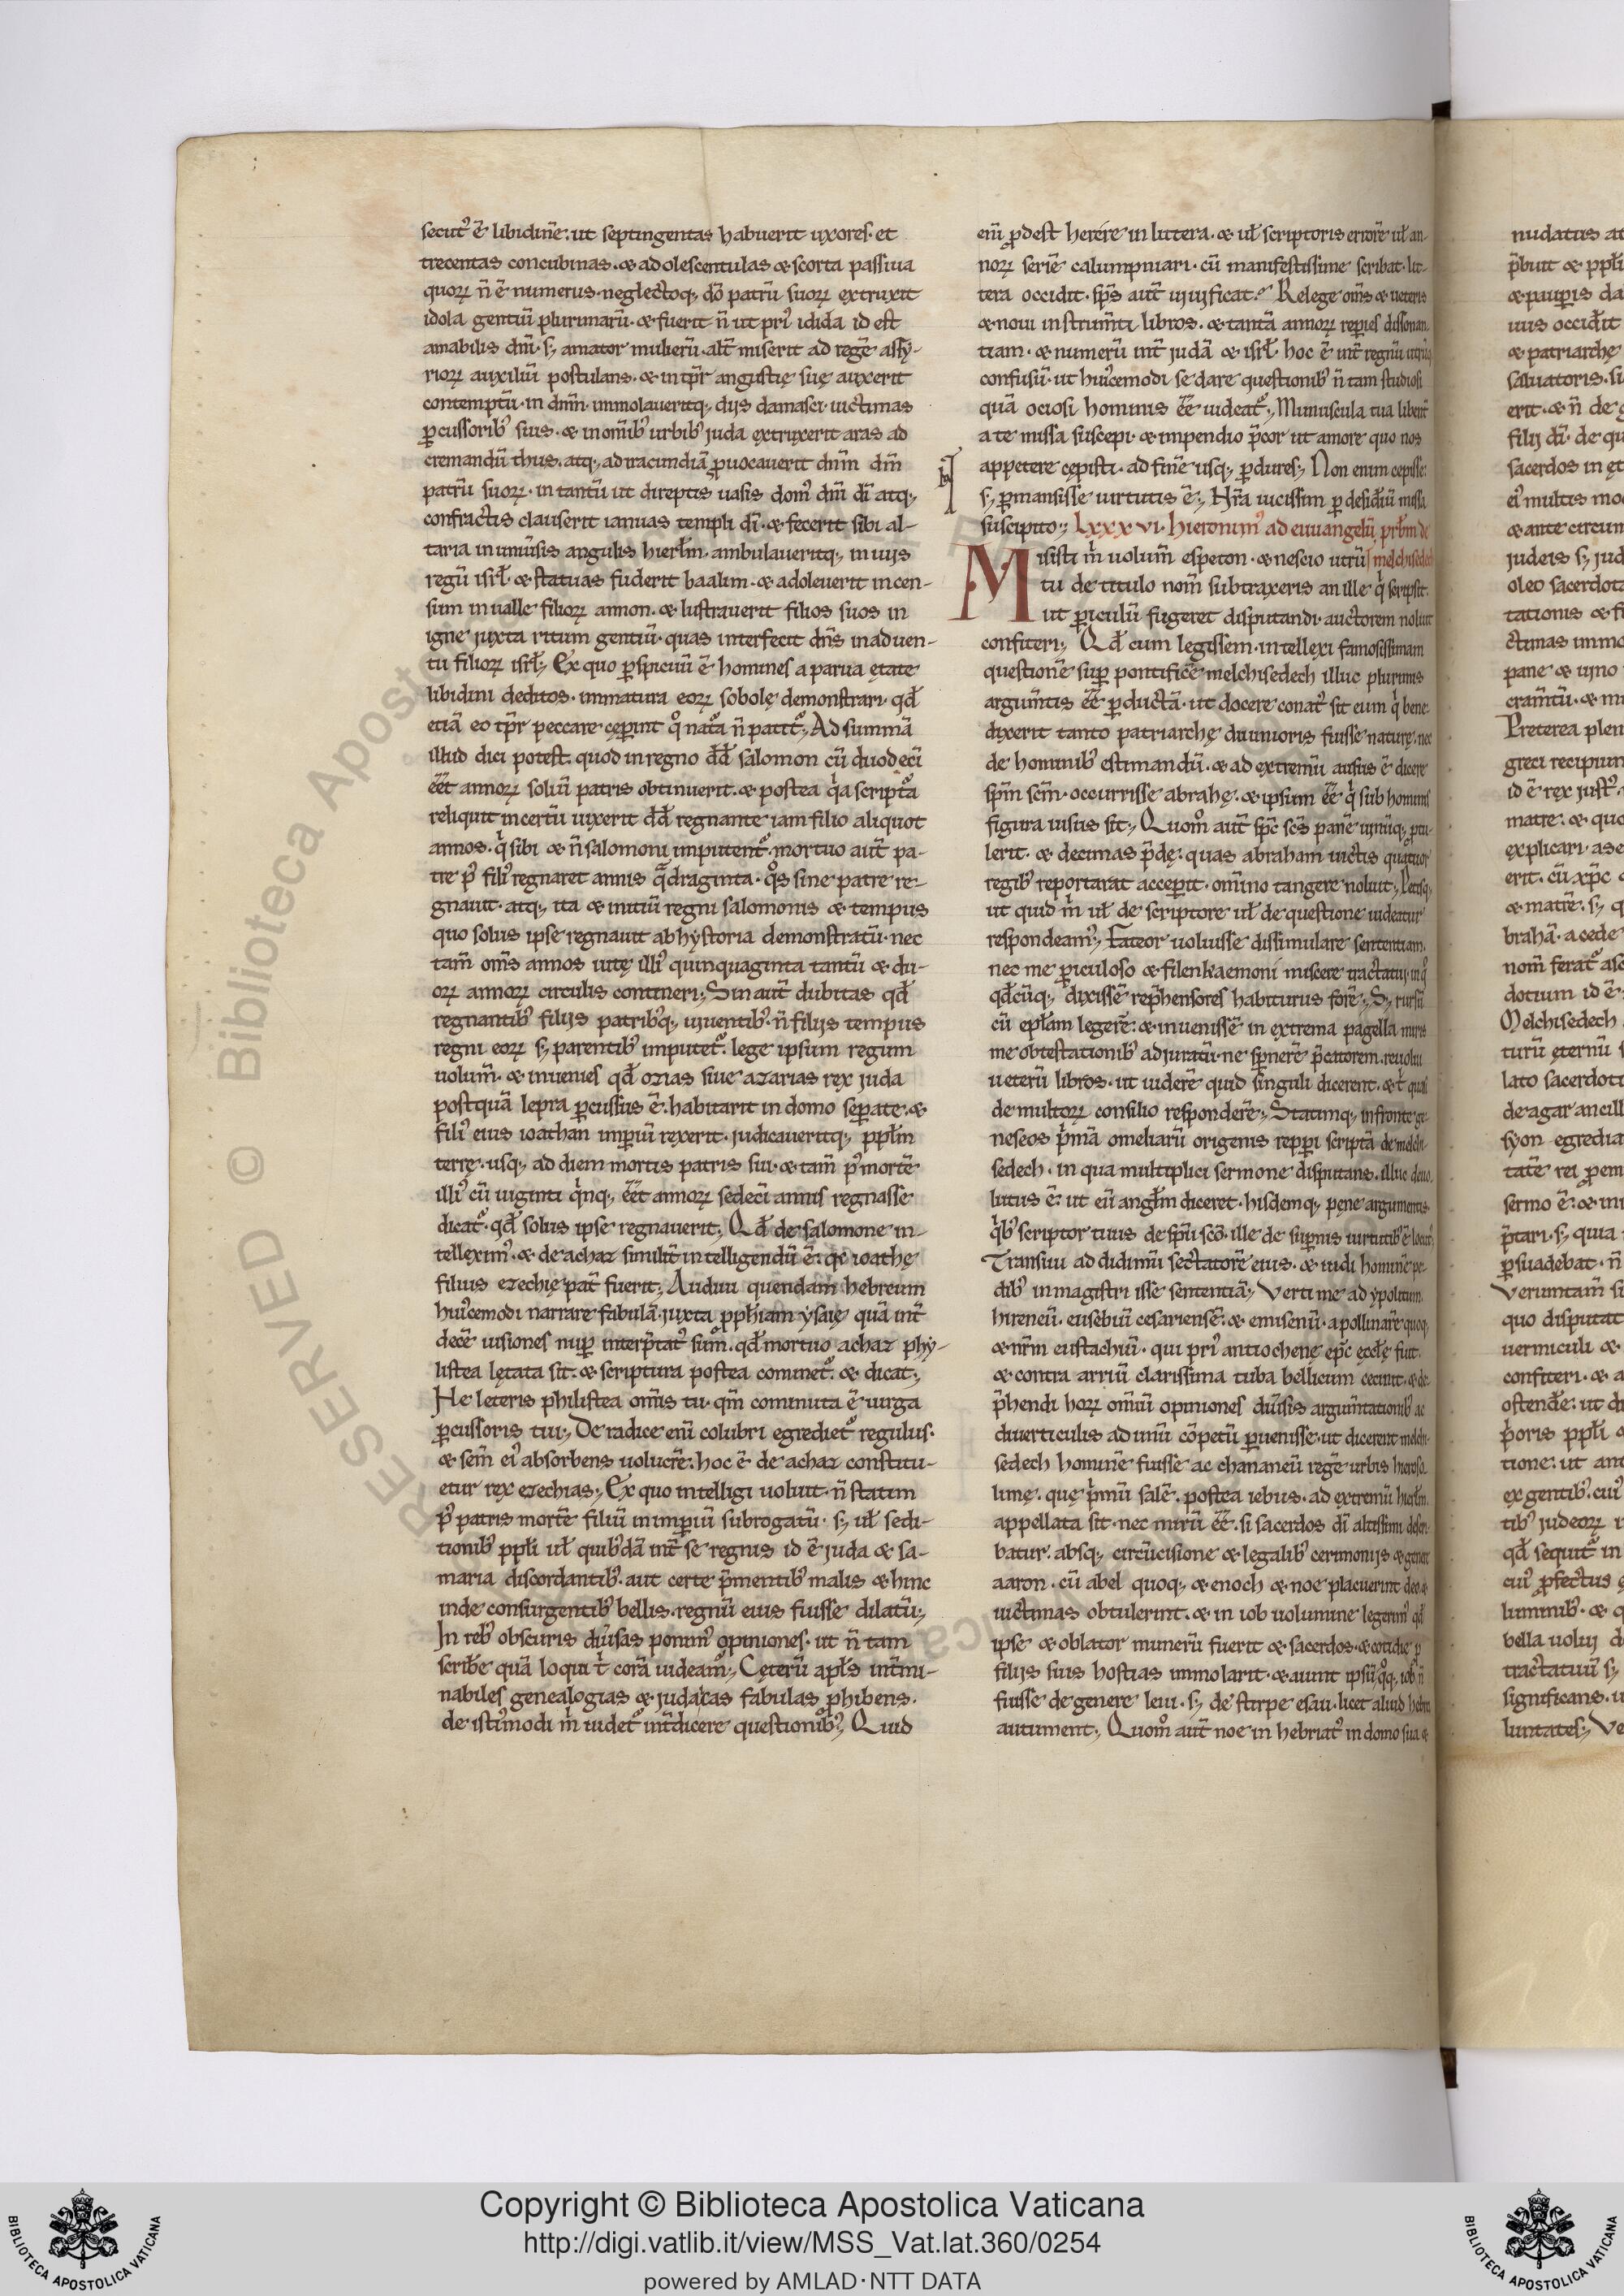 secut᾽ ē libidinē. ut septingentas habuerit uxores. et
trecentas concubinas. & adolescentulas & scorta passiua
quoꝝ n̄ ē numerus. neglectoq; dō patrū suoꝝ extruxit
idola gentiū plurimarū. & fuerit n̄ ut pri᾽ idida id est
amabilis dn̄i. s; amator mulierū. alt̄ miserit ad regē assy-
rioꝝ auxiliū postulans. & in tp̄r angustię suę auxerit
contemptū. in dn̄m. immolaueritq; dijs damasci uictimas
ꝑcussorib᾽ suis. & in om̄ib᾽ urbib᾽ juda extruxerit aras ad
cremandū thus. atq; ad iracundiā ꝓuocauerit dn̄m dm̄
patrū suoꝝ. in tantū ut direptis uasis dom᾽ dn̄i dī atq;
confractis clauserit ianuas templi dī. & fecerit sibi al-
taria in uniūsis angulis hierl̄m. ambulaueritq; in uijs
regū isrl̄. & statuas fuderit baalim. & adoleuerit incen-
sum in ualle filioꝝ annon. & lustrauerit filios suos in
igne juxta ritum gentiū. quas interfecit dn̄s in aduen-
tu filioꝝ isrl̄; Ex quo ꝑspicuū ē homines a parua ętate
libidini deditos. inmatura eoꝝ sobolę demonstrari. qđ
etiā eo tp̄r peccare cęperint qͦ nat̄a n̄ patit᷑; Ad summā
illud dici potest. quod in regno dd̄ salomon cū duodecī
ēēt annoꝝ soliū patris obtinuerit. & postea qͥa script᷑a
reliquit incertū uixerit dd̄ regnante iam filio aliquot
annos. qͥ sibi & n̄ salomoni imputent᷑. mortuo aut̄ pa-
tre p᾽ fili᾽ regnaret annis qͣdraginta. qͦs sine patre re-
gnauit. atq; ita & initiū regni salomonis & tempus
quo solus ipse regnauit ab hystoria demonstratū. nec
tam̄ om̄s annos uitę illi᾽ quinquaginta tantū & du-
oꝝ annoꝝ circulis contineri; Sin aut̄ dubitas qđ
regnantib᾽ filijs patrib᾽q; uiuentib᾽. n̄ filijs tempus
regni eoꝝ s; parentib᾽ imputet᷑. lege ipsum regum
uolum̄. & inuenies qđ ozias siue azarias rex juda
postquā lepra ꝑcussus ē. habitarit in domo seꝑate. &
fili᾽ eius ioathan imꝑiū rexerit. judicaueritq; ppl̄m
terrę. usq; ad diem mortis patris sui. & tam̄ p᾽ mortē
illi᾽ cū uiginti qͥnq; ēēt annoꝝ sedecī annis regnasse
dicat᷑. qđ solus ipse regnauerit; Qđ de salomone in-
tellexim᾽. & de achaz similit̄ intelligendū ē. qi ioathę
filius ezechię pat̄ fuerit; Audiui quendam hebreum
hui᾽cemodi narrare fabulā. juxta ꝓphiam ysaię quā int̄
decē uisiones nuꝑ interp̄tat᾽ sum. qđ mortuo achaz phy-
listea lętata sit. & scriptura postea cominet᷑. & dicat;
Ne leteris philistea om̄is tu. qm̄ cominuta ē uirga
ꝑcussoris tui; De radice enī colubri egrediet᷑ regulus.
& sem̄ ei᾽ absorbens uolucrē. hoc ē de achaz constitu-
etur rex ezechias; Ex quo intelligi uoluit. n̄ statim
p᾽ patris mortē filiū in imꝑiū subrogatū. s; ul̄ sedi-
tionib᾽ ppl̄i ul̄ quib᾽dā int̄ se regnis id ē juda & sa-
maria discordantib᾽. aut certe p̄mentib᾽ malis & hinc
inde consurgentib᾽ bellis. regnū eius fuisse dilatū;
In reb᾽ obscuris diūsas ponim᾽ opiniones. ut n̄ tam
scribe quā loqui t̄ corā uideam᷑; Cęterū apl̄s int̄mi-
nabiles genealogias & judaicas fabulas ꝓhibens.
de isti᾽modi m̄ uidet᷑ int̄dicere questionib᾽; Quid
enī ꝓdest herére in littera. & ul̄ scriptoris errorē ul̄ an-
noꝝ seriē calumpniari. cū manifestissime scribat. lit-
tera occidit. sp̄s aut̄ uiuificat. Relege om̄s & ueteris
& noui instrum̄ti libros. & tantā annoꝝ reꝑies dissonan-
tiam. & numerū int̄ judā & isrl̄ hoc ē int̄ regnū utrūq;
confusū. ut hui᾽cemodi se dare questionib᾽ n̄ tam studiosi
quā ociosi hominis ēē uideat᷑; Munuscula tua libent̄
a te missa suscepi. & impendio p̄cor ut amore quo nos
appetere cępisti. ad finē usq; ꝑdures; Non enim cepisse.
s; ꝑmansisse uirtutis ē; Nr̄a uicissim ꝑ desideriū missa
suscipito; LXXXVI. hieronim᾽ ad euuangelū prb̄m de
Misisti m̄ uolum̄ espeton. & nescio utrū melchisedech
tu de titulo nom̄ subtraxeris an ille qͥ scripsit.
ut ꝑiculū fugeret disputandi. auctorem noluit
confiteri; Qđ cum legissem. intellexi famosissimam
questionē suꝑ pontificē melchisedech illuc plurimis
argum̄tis ēē ꝑductā. ut docere conat᾽ sit eum qͥ bene
dixerit tanto patriarchę diuinioris fuisse naturę. nec
de hominib᾽ estimandū. & ad extremū ausus ē dicere
sp̄m scm̄. occurrisse abrahę. & ipsum ēē qͥ sub hominis
figura uisus sit; Quom̊ aut̄ sp̄c scs̄ panē uinūq; ptu-
lerit. & decimas p̄dę. quas abraham uictis quatuor
regib᾽ reportarat acceperit. om̄ino tangere noluit; Petisq;
ut quid m̄ ul̄ de scriptore ul̄ de questione uideatur
respondeam᾽; Fateor uoluisse dissimulare sententiam.
nec me ꝑiculoso & filenkaemoni miscere tractatui. in qͦ
qđcūq; dixissē rep̄hensores habiturus forē; S; rursū
cū epl̄am legerē. & inuenissē in extrema pagella miris
me obtestationib᾽ adjuratū. ne sꝑnerē p̄catorem. reuolui
ueterū libros. ut uiderē quid singuli dicerent. & t̄ quasi
de multoꝝ consilio responderē; Statimq; in fronte ge-
neseos p̄mā omeliarū origenis repꝑi scriptā de melchi-
sedech. in qua multiplici sermone disputans. illuc deuo-
lutus ē. ut eū angl̄m diceret. hisdemq; pęne argumentis
qͥb᾽ scriptor tuus de sp̄u scō. ille de suꝑnis uirtutib᾽ ē locut᾽.
Transiui ad didimū sectatorē eius. & uidi hominē pe-
dib᾽ in magistri isse sententiā; Verti me ad ypolitum.
hireneū. eusebiū cesariensē. & emisenū. apollinarē quoq;
& nr̄m eustachiū. qui pri᾽ antiochenę ep̄c ęccl̄ę fuit.
& contra arriū clarissima tuba bellicum cecinit. & de-
p̄hendi hoꝝ om̄iū opiniones diūsis argum̄tationib᾽ ac
diuerticulis ad unū cōpetū ꝑuenisse. ut dicerent melchi-
sedech hominē fuisse ac chananeū regē urbis hieroso-
limę. quę p̄mū salē. postea iebus. ad extremū hierl̄m.
appellata sit. nec mirū ēē. si sacerdos dī altissimi descri-
batur. absq; circūcisione & legalib᾽ cerimonijs & genere
aaron. cū abel quoq; & enoch & noe placuerint deo. &
uictimas obtulerint. & in iob uolumine legerim᾽ qđ
ipse & oblator munerū fuerit & sacerdos. & cotidię p
filijs suis hostias immolarit. & aiunt ipsū qͦq; iob n̄
fuisse de genere leui. s; de stirpe esau. licet aliud hebrei
autument; Quom̊ aut̄ noe in hebriat᾽ in domo sua &
nudatus at
p̄buit & ppl̄i
& pauꝑis da
uus occidit
& patriarchę
saluatoris. si
erit. & n̄ de g
filij dī. de qu
sacerdos in ęt
ei᾽ multis mo
& ante circum
judeis s; jud
oleo sacerdota
tationis & fi
ctimas immo
pane & uino
cram̄tū. & mu
Preterea plen
greci recipiun
id ē rex just᾽.
matre. & quo
explicari. a se
erit. cū xp̄c
& matre. s; q
brahā. a cede
nom̄ ferat᷑ as
dotium id ē
Melchisedech
turū ęternū s
lato sacerdoti
de agar ancill
syon egredia
tatē rei ꝓem
sermo ē. & in
p̄tari. s; quia
ꝑsuadebat. n̄
Verumtam̄ si
quo disputat
uermiculi &
confiteri. & a
ostendē. ut di
p̄oris ppl̄i
tione. ut ant
ex gentib᾽. cui᾽
tib᾽ judeoꝝ
qđ sequit᷑ in
cui᾽ ꝓfectus
luminib᾽. & q
bella uolui d
tractatuū s;
significans. u
luntates; Ve
RESERVED © Biblioteca Apostolica Vaticana
Copyright © Biblioteca Apostolica Vaticana
http://digi.vatlib.it/view/MSS_Vat.lat.360/0254
powered by AMLAD·NTT DATA
BIBLIOTECA APOSTOLICA VATICANA
BIBLIOTECA APOSTOLICA VATICANA